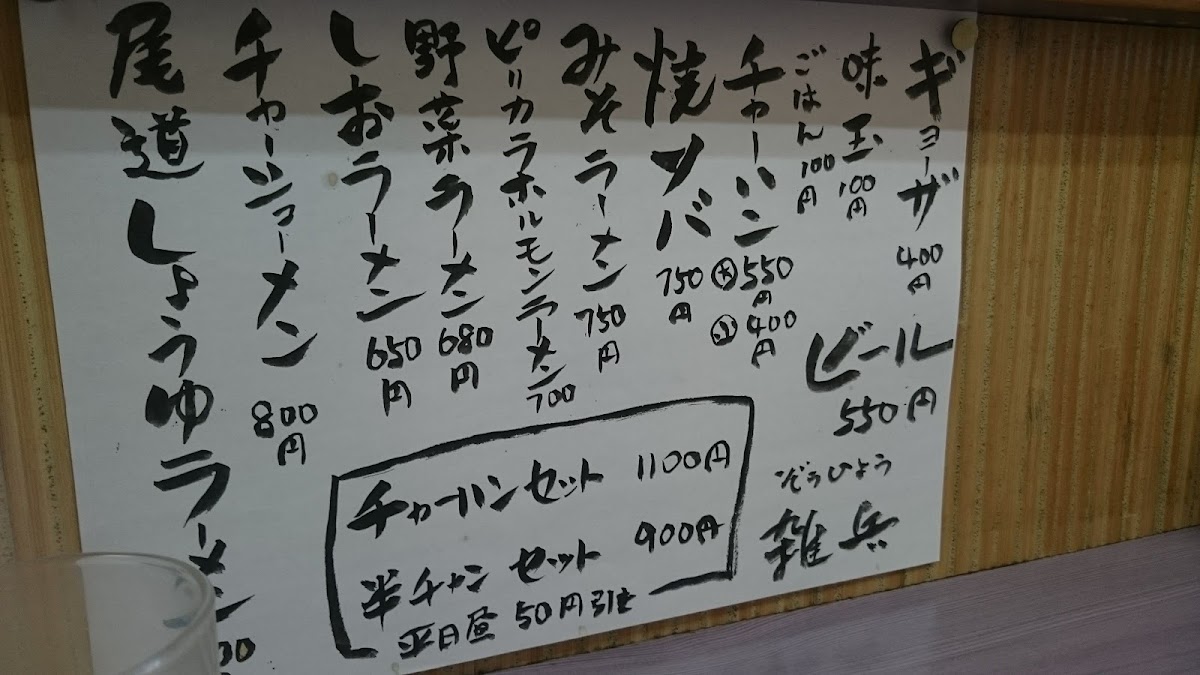 ギョーザ 400円
味玉 100円
ごはん 100円
チャーハン 大 550円 小 400円
焼ソバ 750円
みそラーメン 750円
ピリカラホルモンラーメン 700
野菜ラーメン 680円
しおラーメン 650円
チャーシューメン 800円
尾道しょうゆラーメン
ビール
550円
チャーハンセット 1100円
半チャンセット 900円
平日昼 50円引き
ぞうひょう
雑兵